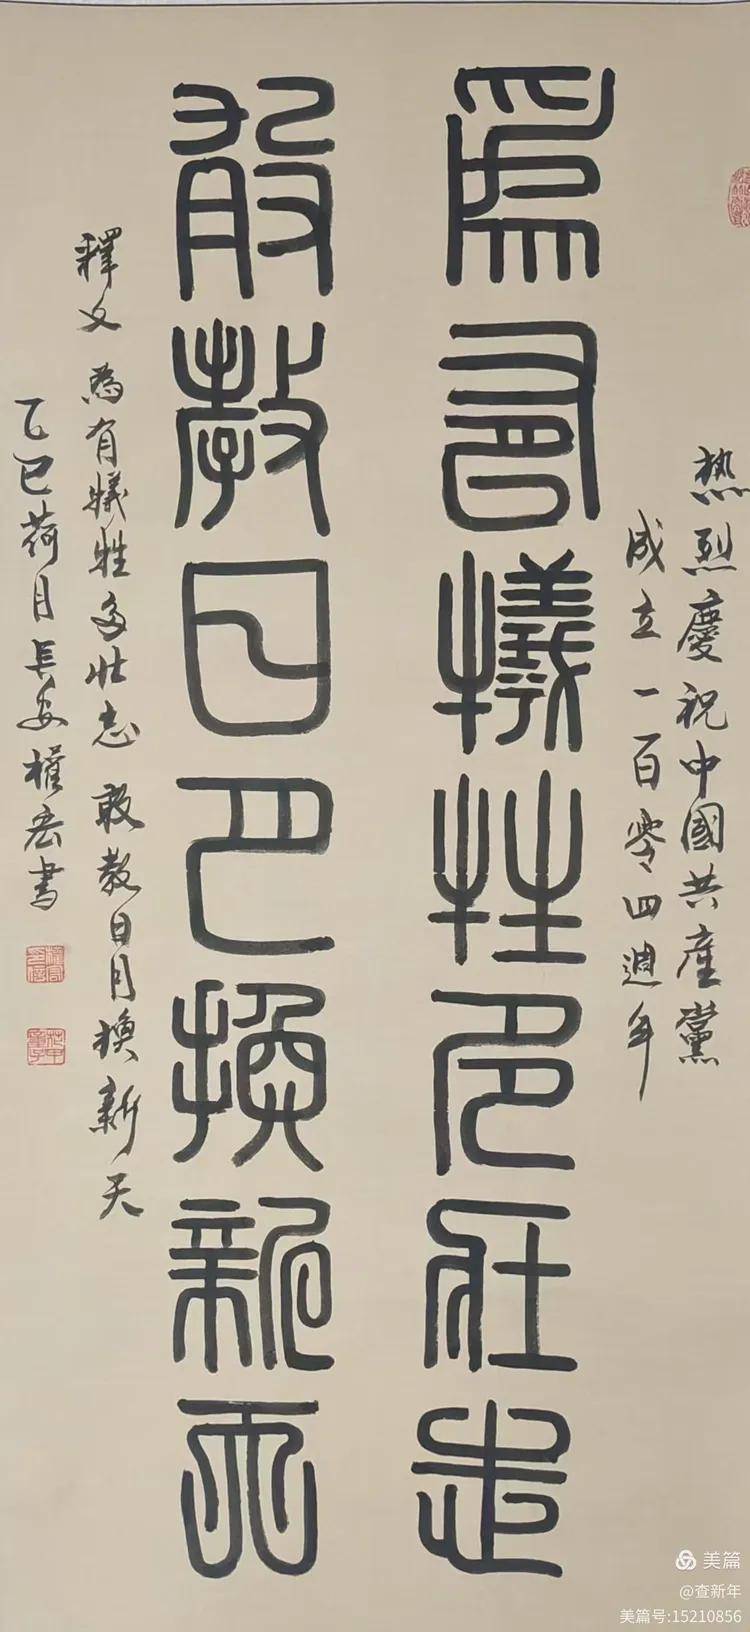 热烈慶祝中國共產黨
成立一百零四週年
為有犧牲多壯志
敢教日月換新天
釋文 為有犧牲多壯志 敢教日月換新天
乙巳荷月長安權宏書
美篇
@查新年
美篇号:15210856